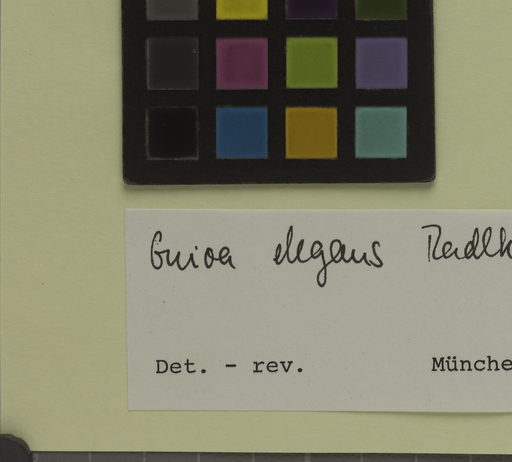 Guioa elegans Radlk
Det. - rev. Münche